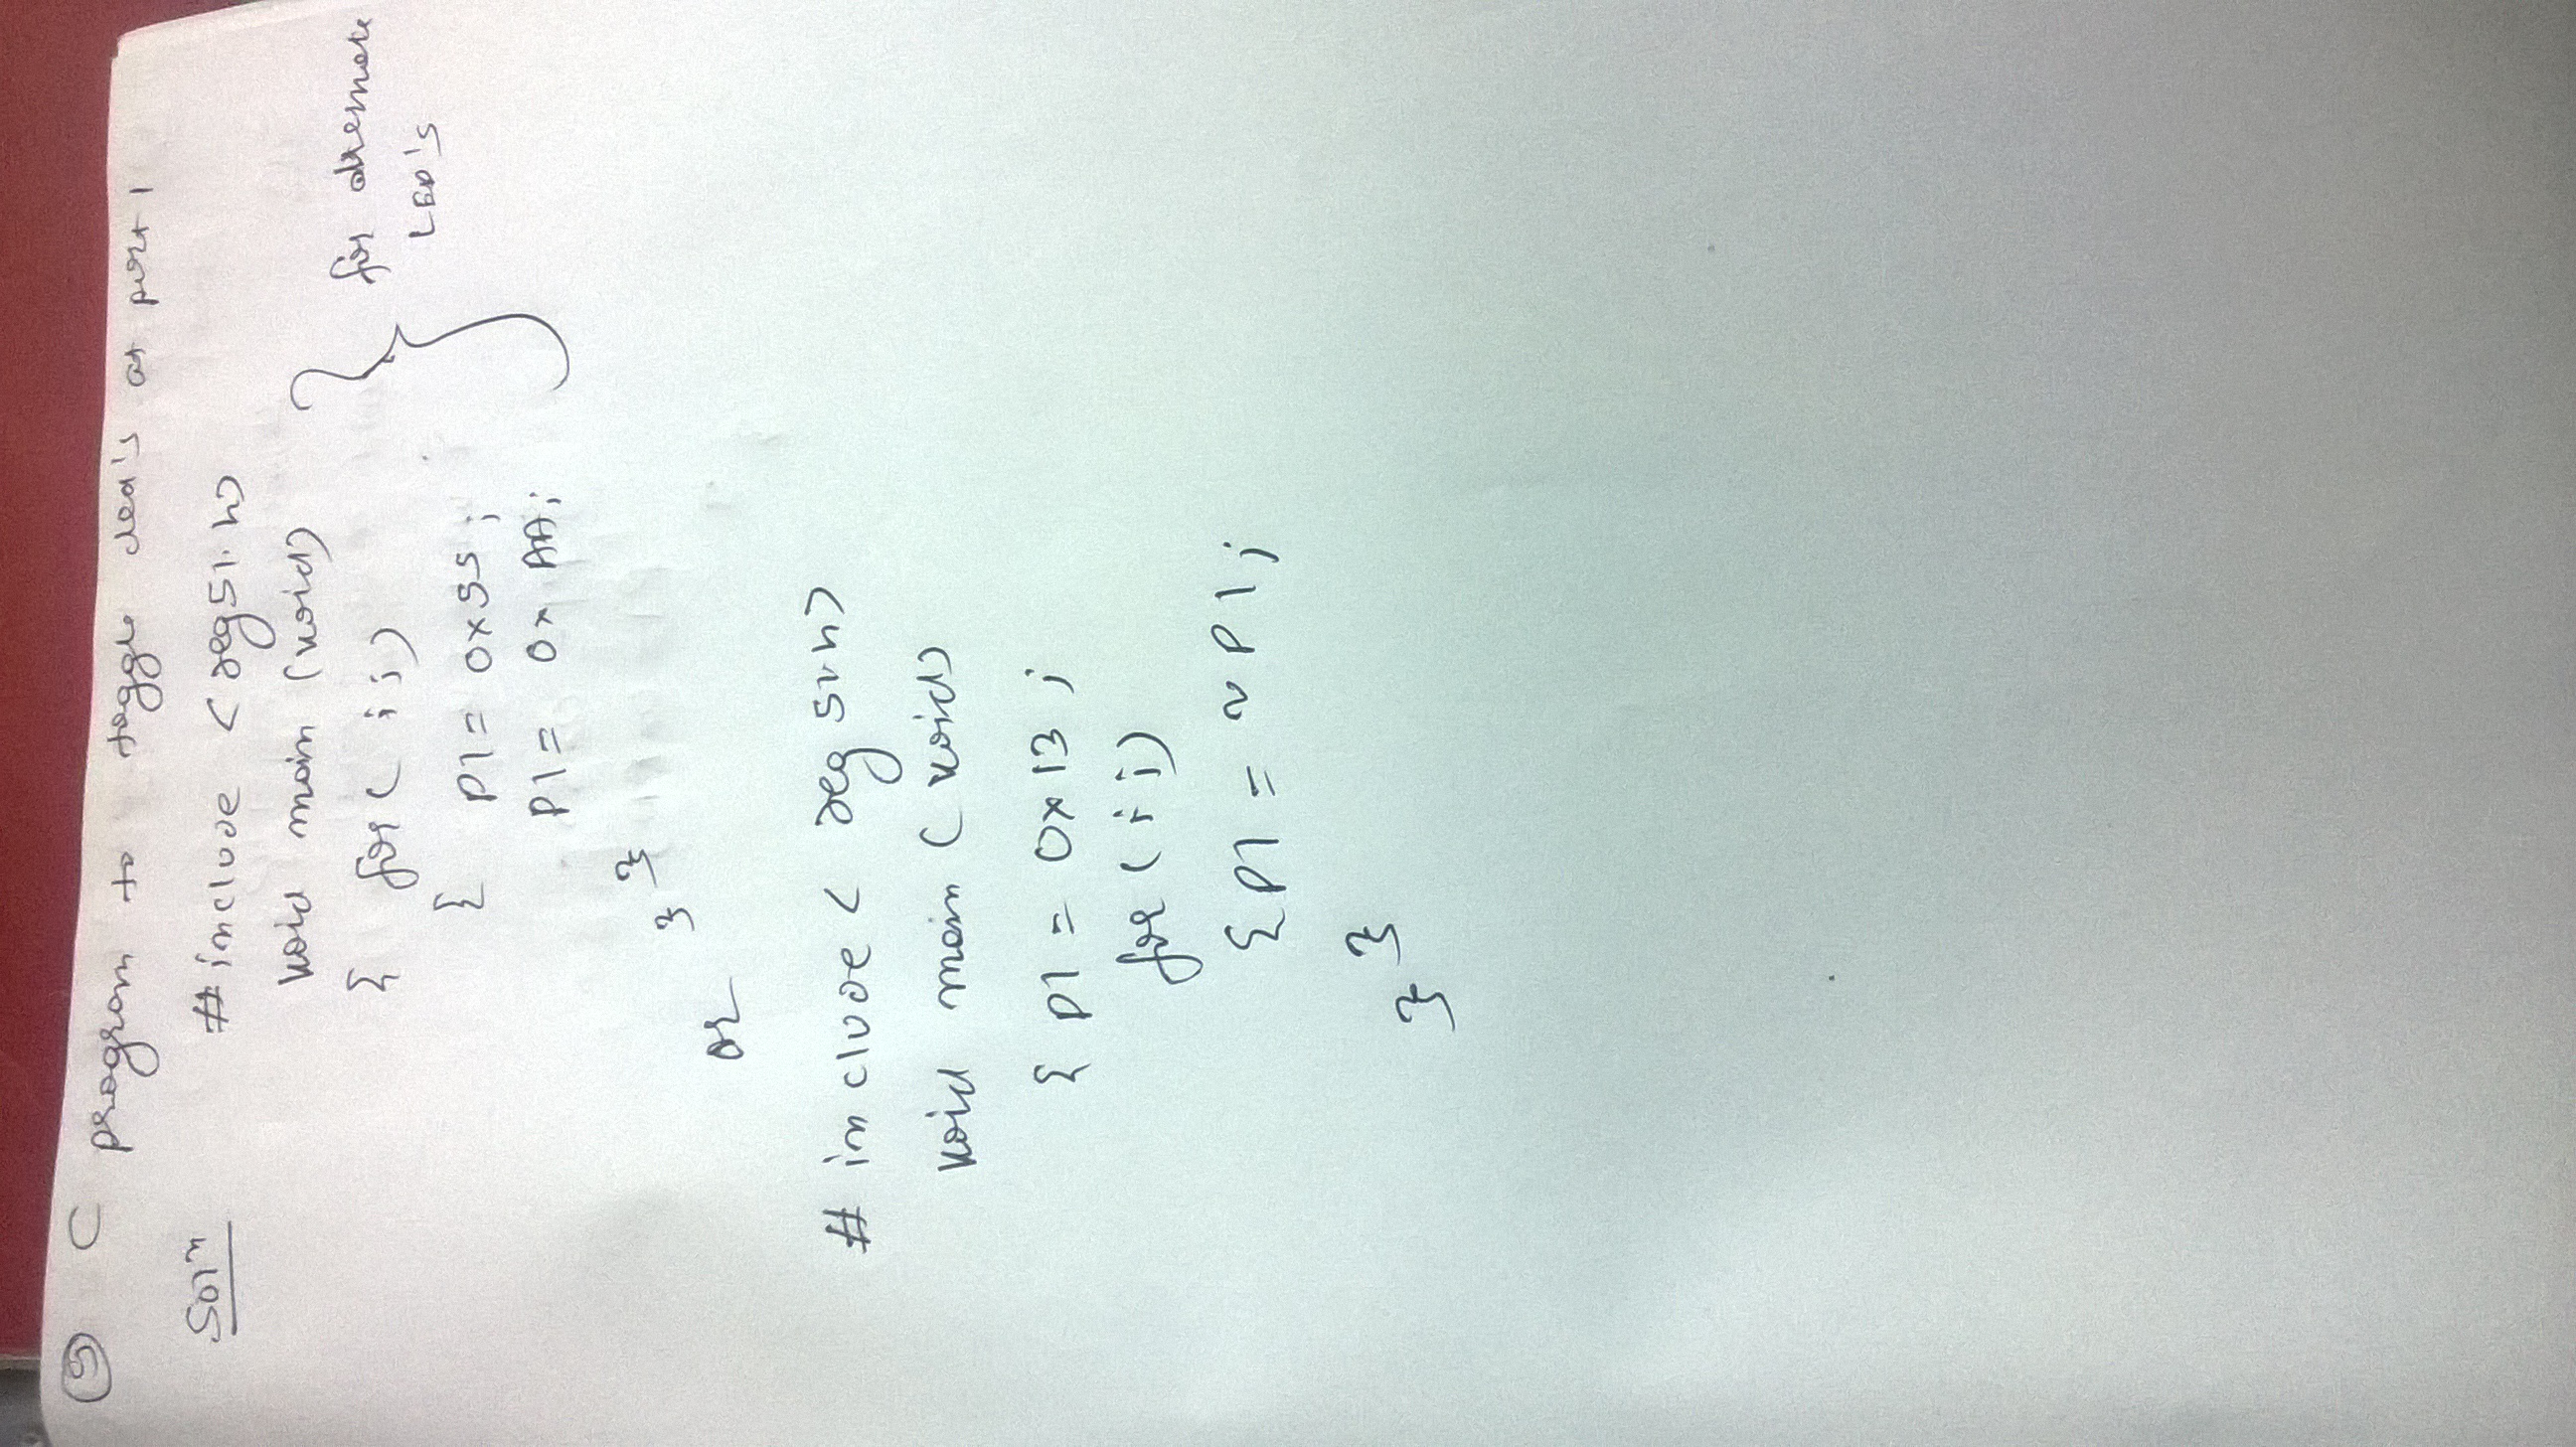 ⑤ C program to toggle led's at port 1
Solⁿ
#include <reg51.h>
void main (void)
{ for ( ; ; )
{ P1 = 0x55 ;
P1 = 0x AA ;
} }
} for alternate
LED's
or
# include < reg 51.h>
void main ( void)
{ P1 = 0x13 ;
for ( ; ; )
{ P1 = ~ P1 ;
}
}